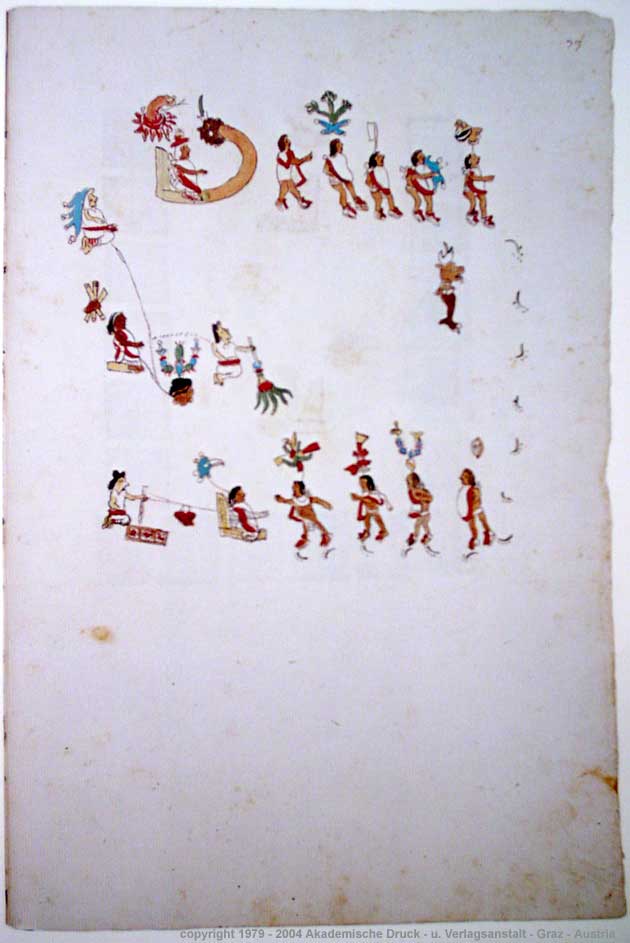 copyright 1979 - 2004 Akademische Druck - u. Verlagsanstalt - Graz - Austria